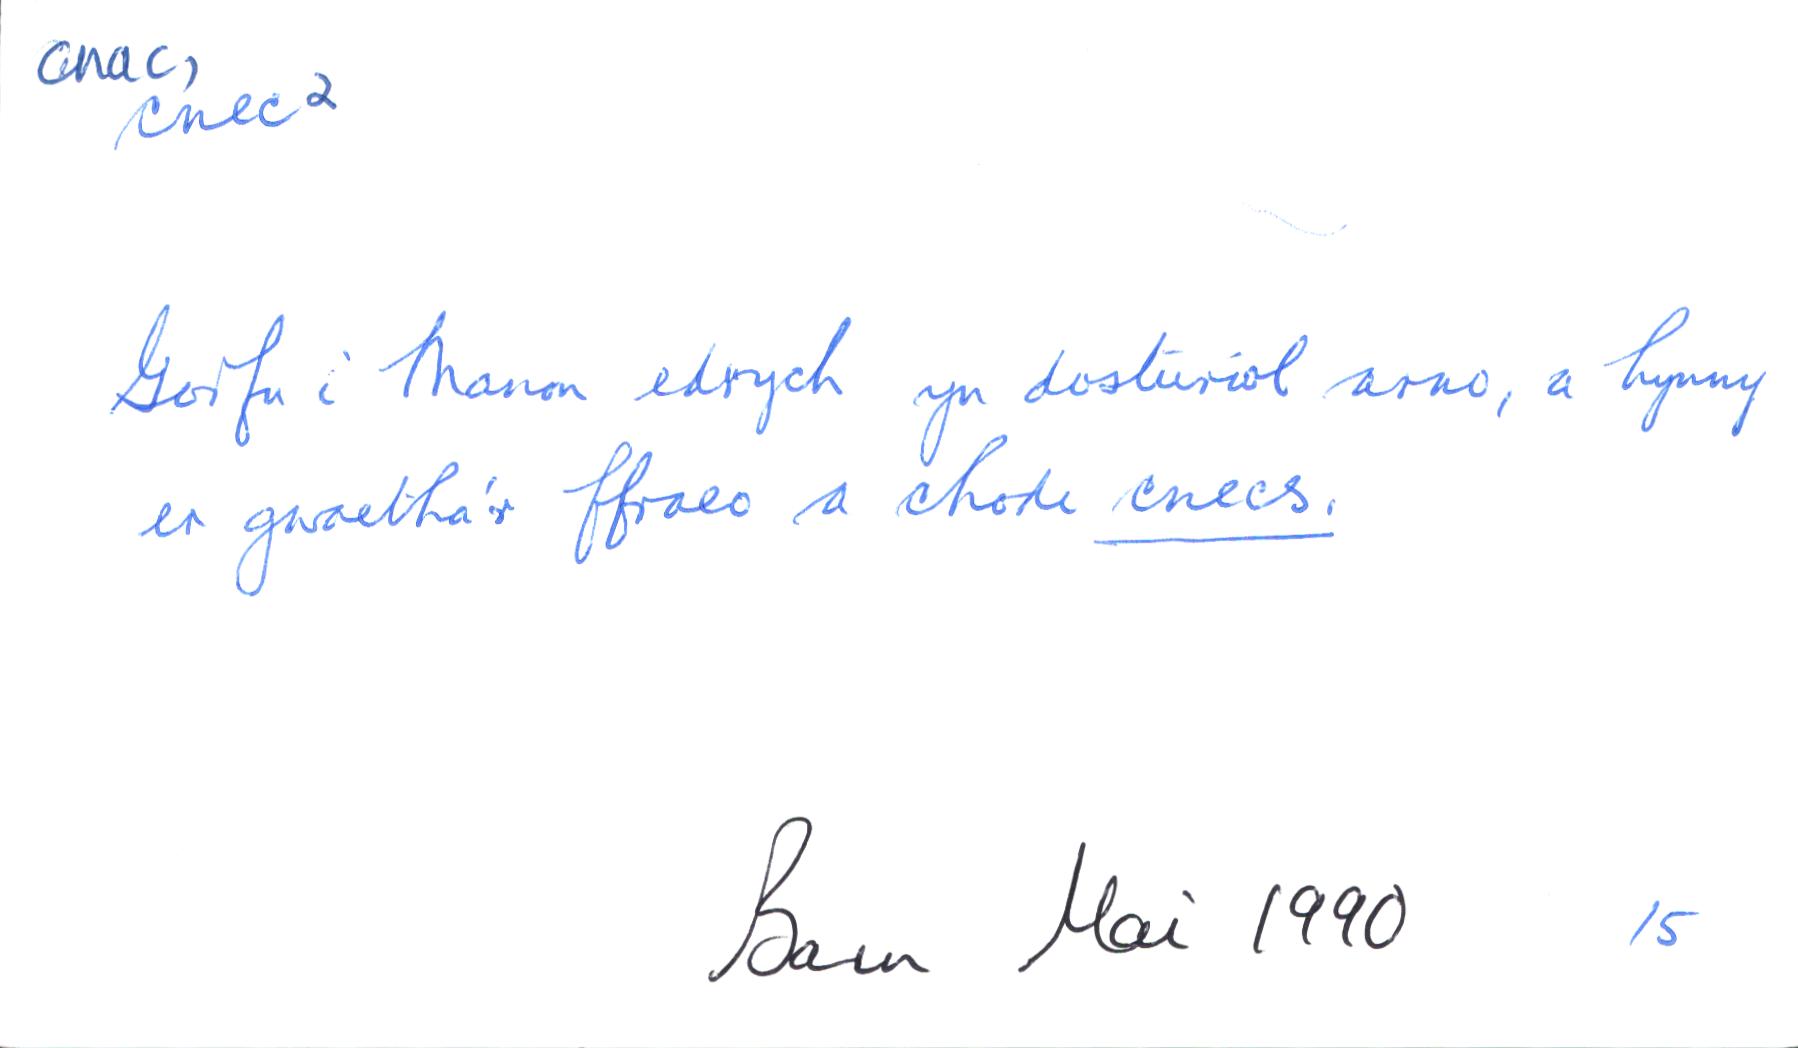 cnac,
cnec²
Gorfu i Manon edrych yn dosturiol arno, a hynny
er gwaetha'r ffraeo a chode cnecs.
Barn Mai 1990 15